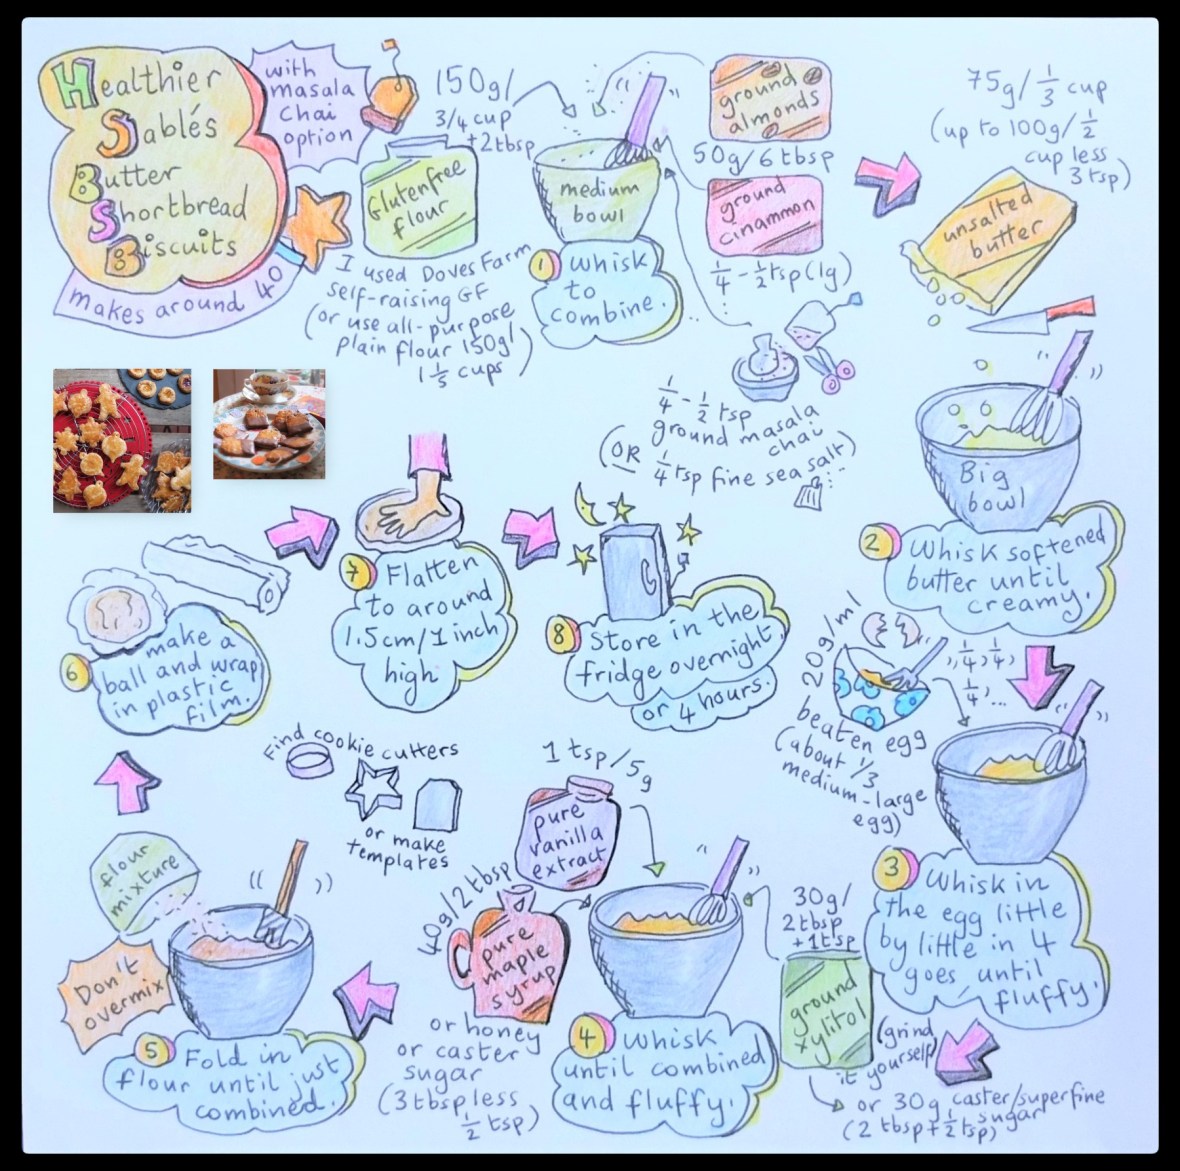 Healthier
Sablés
Butter
Shortbread
Biscuits
makes around 40
with
masala
chai
option
150g/
3/4 cup
+2tbsp
Glutenfree
flour
I used Doves Farm
self-raising GF
(or use all-purpose
plain flour 150g/
1 1/5 cups)
medium
bowl
1 Whisk
to
combine.
ground
almonds
50g/6 tbsp
ground
cinammon
1/4-1/2tsp (1g)
1/4-1/2 tsp
ground masala
chai
(OR 1/4 tsp fine sea salt)
75g/1/3 cup
(up to 100g/1/2
cup less
3 tsp)
unsalted
butter
Big
bowl
2 Whisk softened
butter until
creamy.
20g/ml
beaten egg
(about 1/3
medium-large
egg)
1/4, 1/4,
1/4, ...
3 Whisk in
the egg little
by little in 4
goes until
fluffy.
30g/
2tbsp
+1tsp
ground
xylitol
(grind
it yourself)
or 30g caster/superfine
sugar
(2 tbsp+1/2 tsp)
1 tsp/5g
pure
vanilla
extract
40g/2 tbsp
pure
maple
syrup
or honey
or caster
sugar
(3 tbsp less
1/2 tsp)
4 Whisk
until combined
and fluffy.
flour
mixture
Don't
overmix
5 Fold in
flour until just
combined.
6 make a
ball and wrap
in plastic
film.
Find cookie cutters
or make
templates
7 Flatten
to around
1.5cm/1 inch
high
8 Store in the
fridge overnight
or 4 hours.